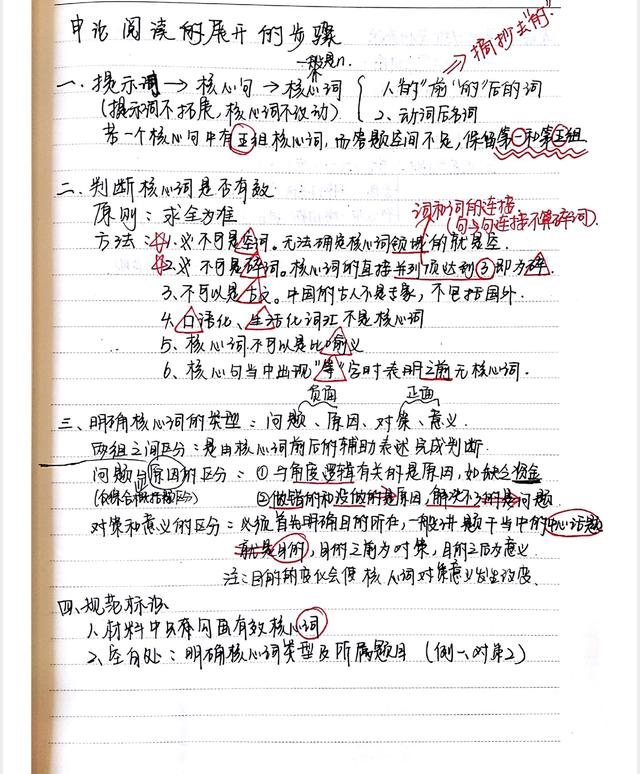 申论阅读的展开的步骤
一般是n.
⇒摘抄去"的".
一、提示词→核心句→核心词 { 1、"的"前"的"后的词
(提示词不拓展,核心词不改动) 2、动词后名词
若一个核心句中有五组核心词,而答题空间不足,保留第一和第五组
二、判断核心词是否有效
原则:求全为准
词和词的连接
(句与句连接不算碎词).
方法:1.必不可是空词。无法确定核心词领域的就是空.
2.必不可是碎词。核心词的直接并列项达到③即为碎
3、不可以是古文。中国的古人不是专家,不包括国外.
4、口语化、生活化词汇不是核心词
5、核心词不可以是比喻义
6、核心句当中出现"等"字时表明之前无核心词.
负面 正面
三、明确核心词的类型:问题、原因、对策、意义
两组之间区分:是由核心词前后的辅助表述完成判断.
问题与原因的区分:①与角度逻辑有关的是原因,如缺乏资金
(仅综合概括题区分) ②做错的和没做的是原因,解决不了的是问题
对策和意义的区分:必须首先明确目的所在,一般讲题干当中的中心话题
就是目的,目的之前为对策,目的之后为意义
注:目的的变化会使核心词对策意义发生改变.
四、规范标识
1、材料中只需勾画有效核心词
2、空白处:明确核心词类型及所属题目(例一、对策2)